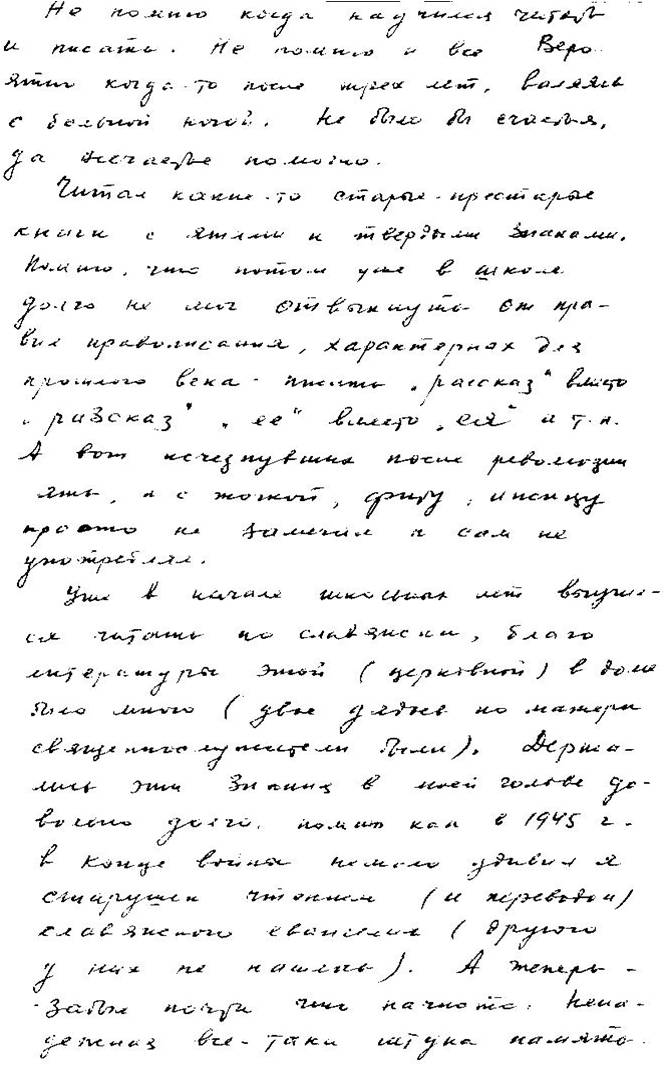 Не помню когда научился читать
и писать. Не помню и все. Веро-
ятно когда-то после трех лет, валяясь
с больной ногой. Не было бы счастья,
да несчастье помогло.
Читал какие-то старые-престарые
книги с ятями и твердыми знаками.
Помню, что потом уже в школе
долго не мог отвыкнуть от пра-
вил правописания, характерных для
прошлого века - писать „рассказ" вместо
„разсказ" „ее" вместо „ея" и т.п.
А вот исчезнувших после революции
ять, и с точкой, фиту, ижицу
просто не замечал и сам не
употреблял.
Уже в начале школьных лет выучил-
ся читать по славянски, благо
литературы этой (церковной) в доме
было много (двое дядьев по матери
священнослужители были). Держа-
лись эти знания в моей голове до-
вольно долго. помню как в 1945 г.
в конце войны немало удивил я
старушек чтением (и переводом)
славянского евангелия (другого
у них не нашлось). А теперь -
забыл почти что начисто. Нена-
дежная все-таки штука память.